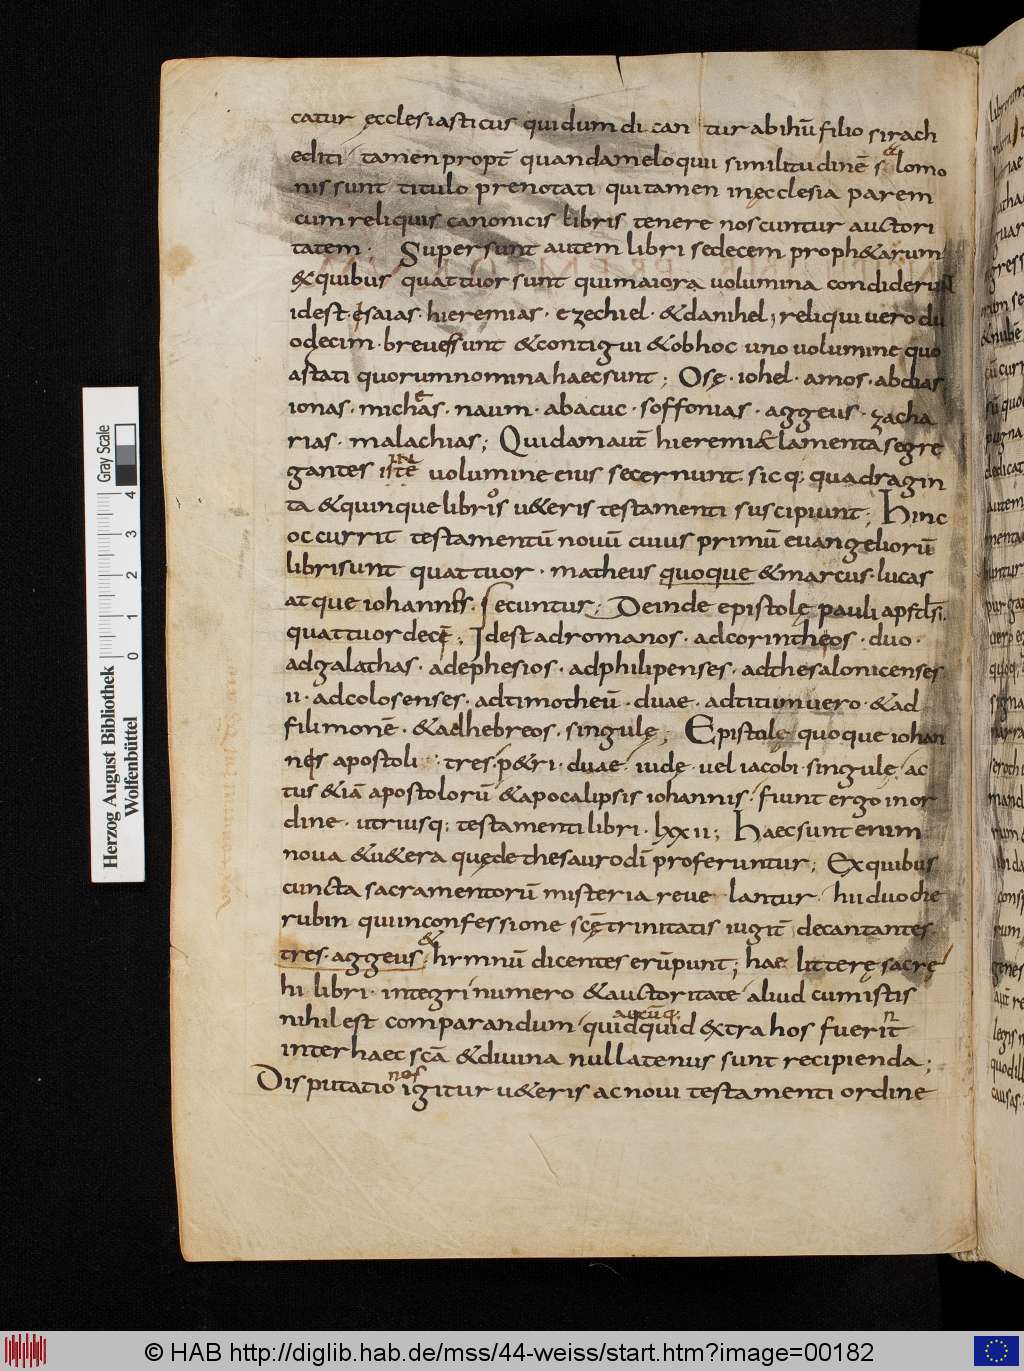 catur ęcclesiasticus qui dum dican tur ab ihū filio sirach
editi tamen propt̄ quandam eloquii similitudinē salomo
nis sunt titulo prenotati qui tamen in ęcclesia parem
cum reliquis canonicis libris tenere noscuntur auctori
tatem; Supersunt autem libri sedecem proph&arum
&quibus quattuor sunt qui maiora volumina condiderunt
idest esaias· hieremias· ezechiel· &danihel; reliqui vero du
odęcim· breves sunt &contigui &ob hoc uno volumine quo
astati quorum nomina haec sunt; Osę· iohel· amos· abdias
ionas· micheas· naum· abacuc· soffonias· aggeus· zacha
rias· malachias; Quidam aut̄ hieremiæ lamenta segre
gantes istē volumine eius secernunt· sicq; quadragin
ta &quinque libros u&eris testamenti suscipiunt; Hinc
occurrit testamentū novū cuius primū euangeliorū
libri sunt quattuor· matheus quoque &marcus· lucas
atque iohannes· secuntur; Deinde epistolę pauli apostli·
quattuordecē; Idest ad romanos· ad corintheos· duo·
ad galathas· ad ephesios· ad philipenses· ad thesalonicenses
ii· ad colosenses· ad timotheū· duae· ad titum vero· &ad
filimonē· &ad hebreos· singulę; Epistolę quoque iohan
nes apostoli tres· p&ri· duae· iudę· vel iacobi· singulę ac
tus &iā apostolorū &apocalipsis iohannis· fiunt ergo in or
dine· utriusq; testamenti libri· lxxii; Haec sunt enim
nova &u&era quę de thesauro dī proferuntur; Ex quibus
cuncta sacramentorū misteria reve lantur· hii duo che
rubin qui in confessione scę trinitatis iugit̄ decantantes
tres· aggeus & hrmnū dicentes erūpunt; hae litterę sacrę
hi libri· integri numero &auctoritate aliud cum istis
nihil est comparandum quidquid extra hos fuerit
inter haec scā &divina nullatenus sunt recipienda;
Disputationes igitur u&eris ac novi testamenti ordine
Herzog August Bibliothek
Wolfenbüttel
0 1 2 3 4
Gray Scale
© HAB http://diglib.hab.de/mss/44-weiss/start.htm?image=00182